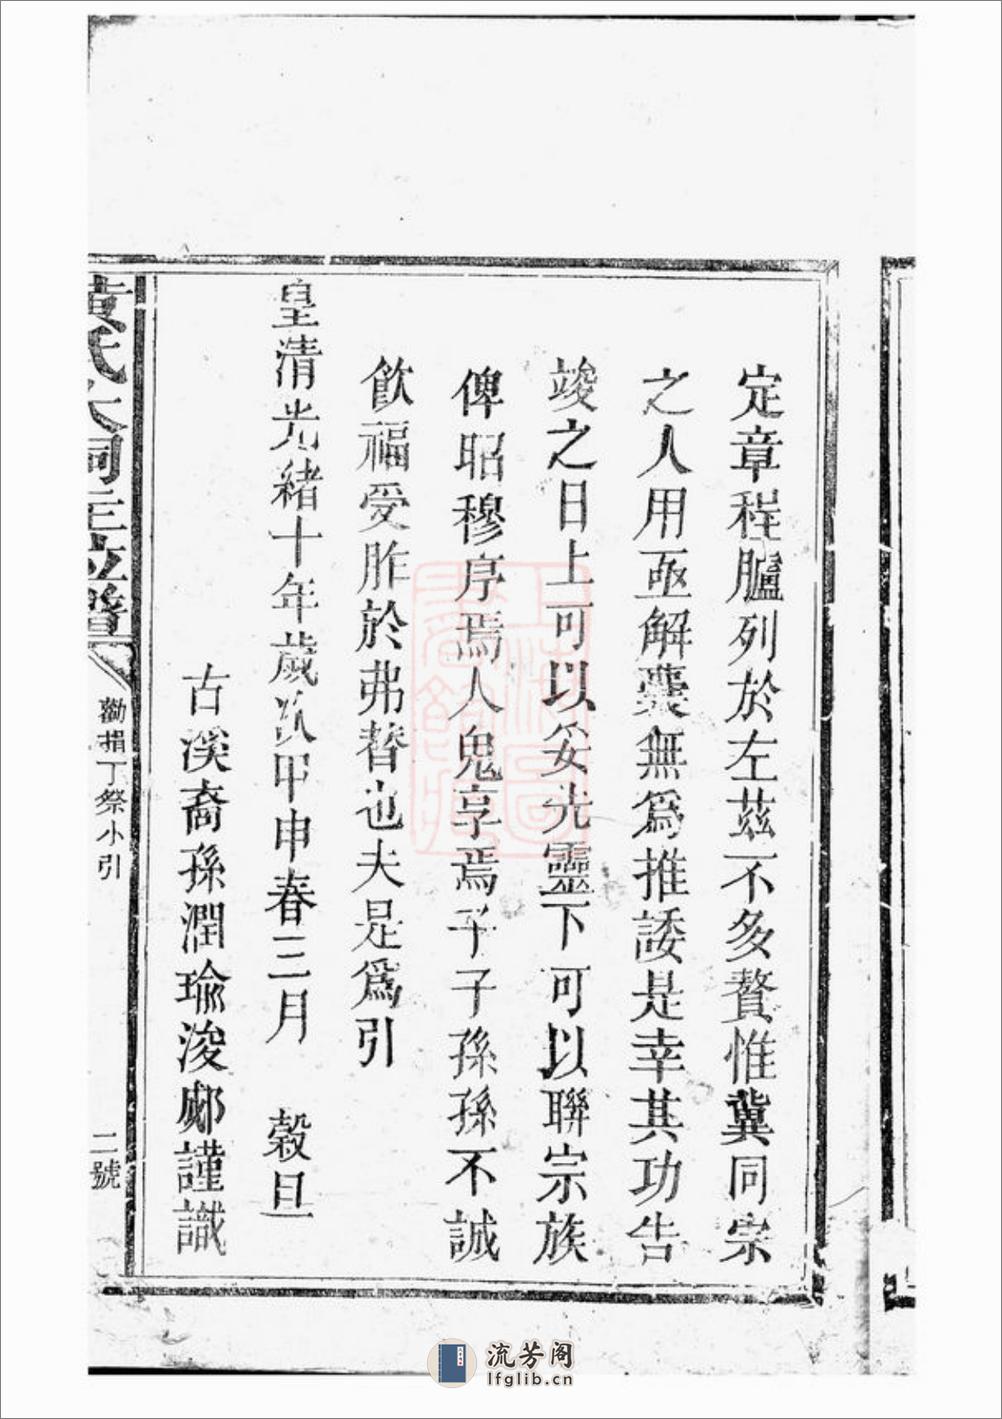 定章程臚列於左茲不多贅惟冀同宗
之人用亟解囊無爲推諉是幸其功告
竣之日上可以妥先靈下可以聯宗族
俾昭穆序焉人鬼享焉子子孫孫不誠
飲福受胙於弗替也夫是爲引
皇清光緒十年歲次甲申春三月 穀旦
古溪裔孫潤瑜浚郕謹識
黃氏大祠主位譜
勸捐丁祭小引
二號
流芳阁
lfglib.cn